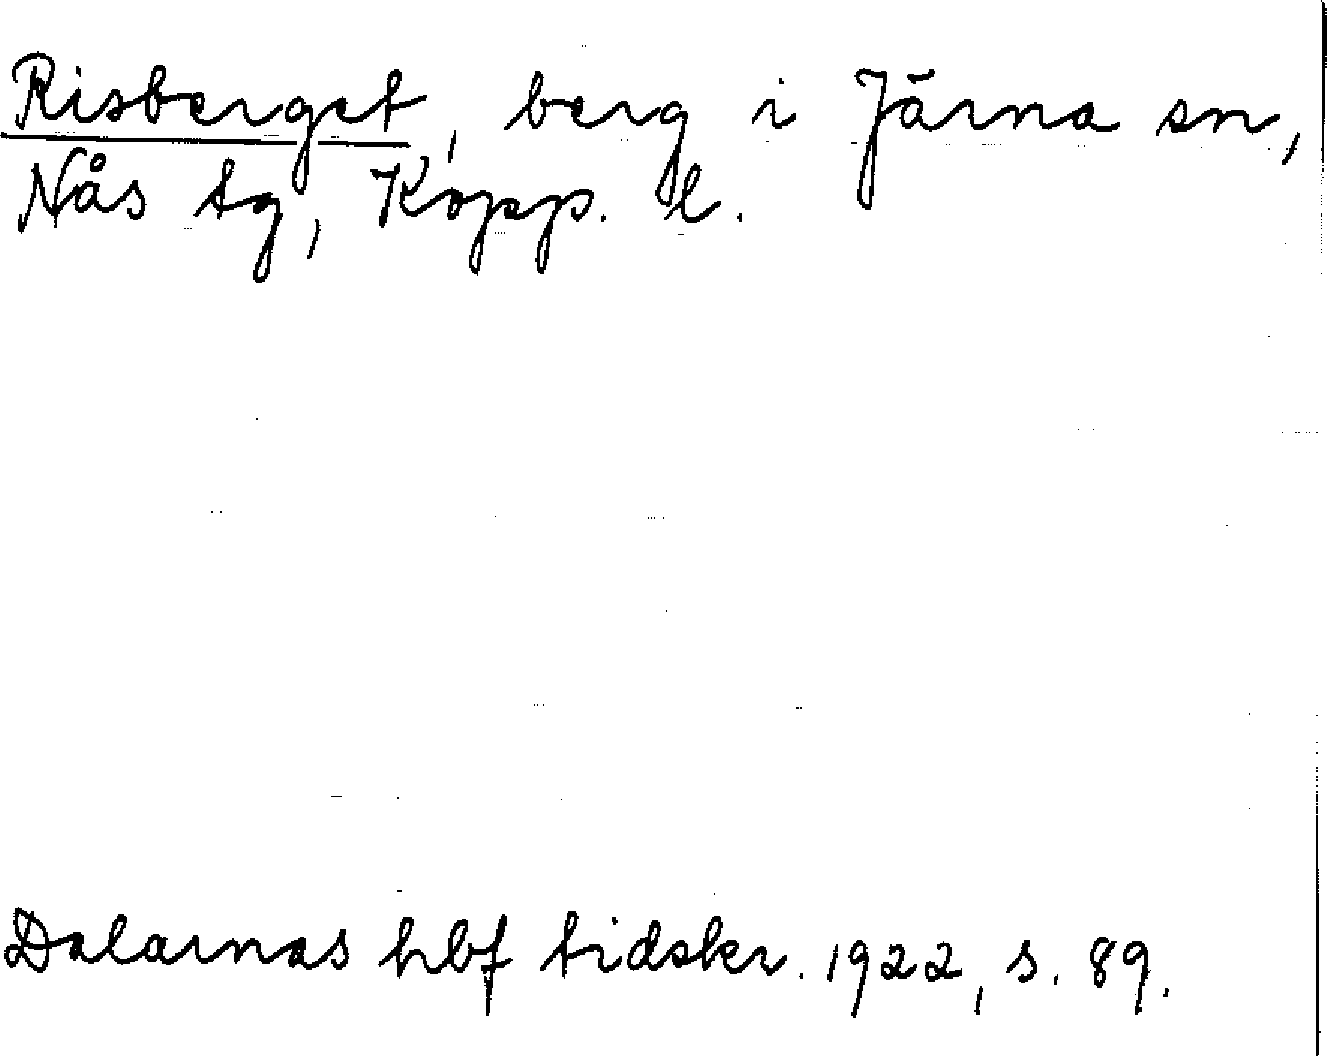 Risberget, berg i Järna sn,
Nås tg, Kopp. l.
Dalarnas hbf tidskr. 1922, s. 89.